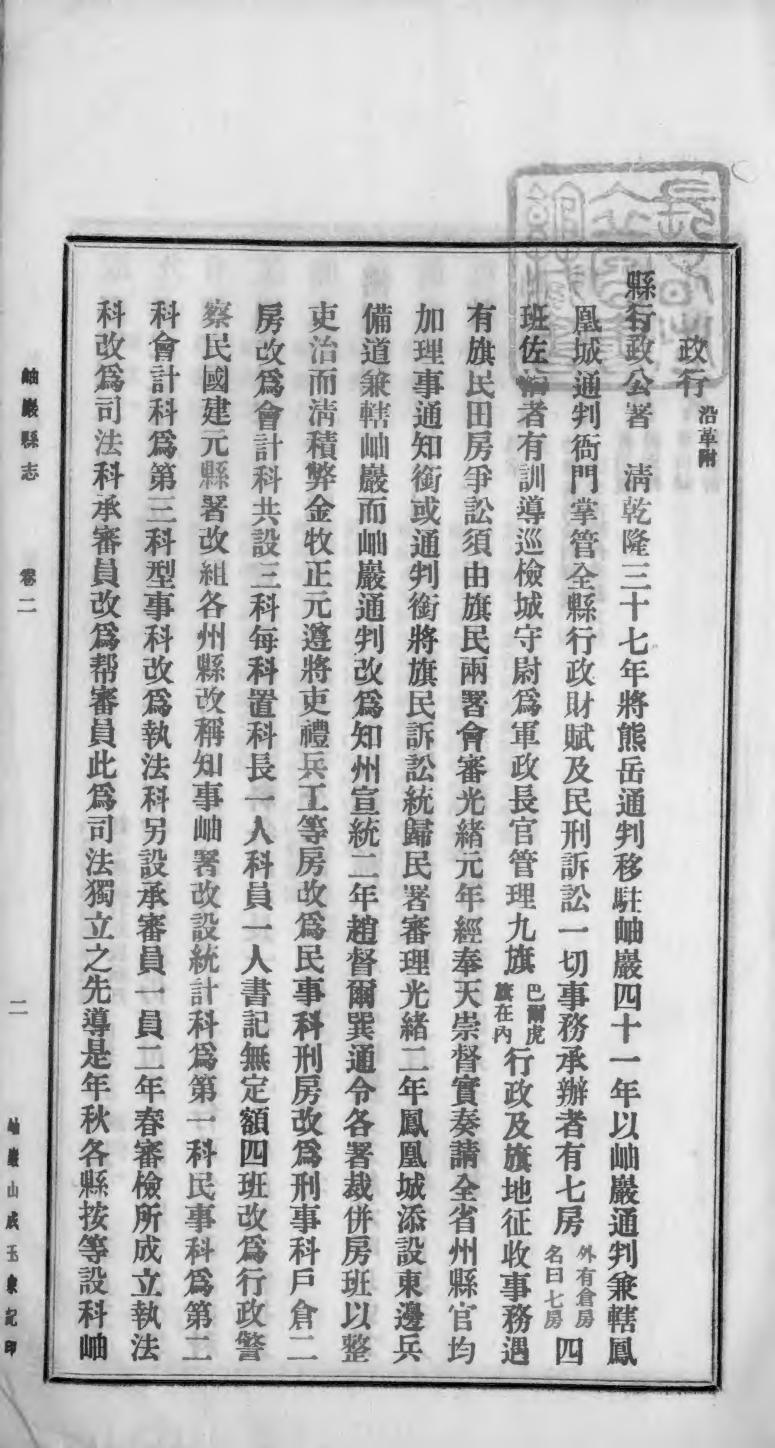 政行 沿革附
縣行政公署 清乾隆三十七年將熊岳通判移駐岫巖四十一年以岫巖通判兼轄鳳
凰城通判衙門掌管全縣行政財賦及民刑訴訟一切事務承辦者有七房外有倉房名曰七房四
班佐者有訓導巡檢城守尉爲軍政長官管理九旗巴爾虎旗在內行政及旗地征收事務遇
有旗民田房爭訟須由旗民兩署會審光緒元年經奉天崇督實奏請全省州縣官均
加理事通知銜或通判銜將旗民訴訟統歸民署審理光緒二年鳳凰城添設東邊兵
備道兼轄岫巖而岫巖通判改爲知州宣統二年趙督爾巽通令各署裁併房班以整
吏治而清積弊金牧正元遵將吏禮兵工等房改爲民事科刑房改爲刑事科戶倉二
房改爲會計科共設三科每科置科長一人科員一人書記無定額四班改爲行政警
察民國建元縣署改組各州縣改稱知事岫署改設統計科爲第一科民事科爲第二
科會計科爲第三科型事科改爲執法科另設承審員一員二年春審檢所成立執法
科改爲司法科承審員改爲帮審員此爲司法獨立之先導是年秋各縣按等設科岫
岫巖縣志 卷二 二 岫巖山成玉東記印